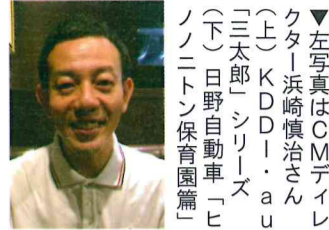 ▼左写真はCMディレ
クター浜崎慎治さん
(上)KDDI・au
「三太郎」シリーズ
(下)日野自動車「ヒ
ノノニトン保育園篇」